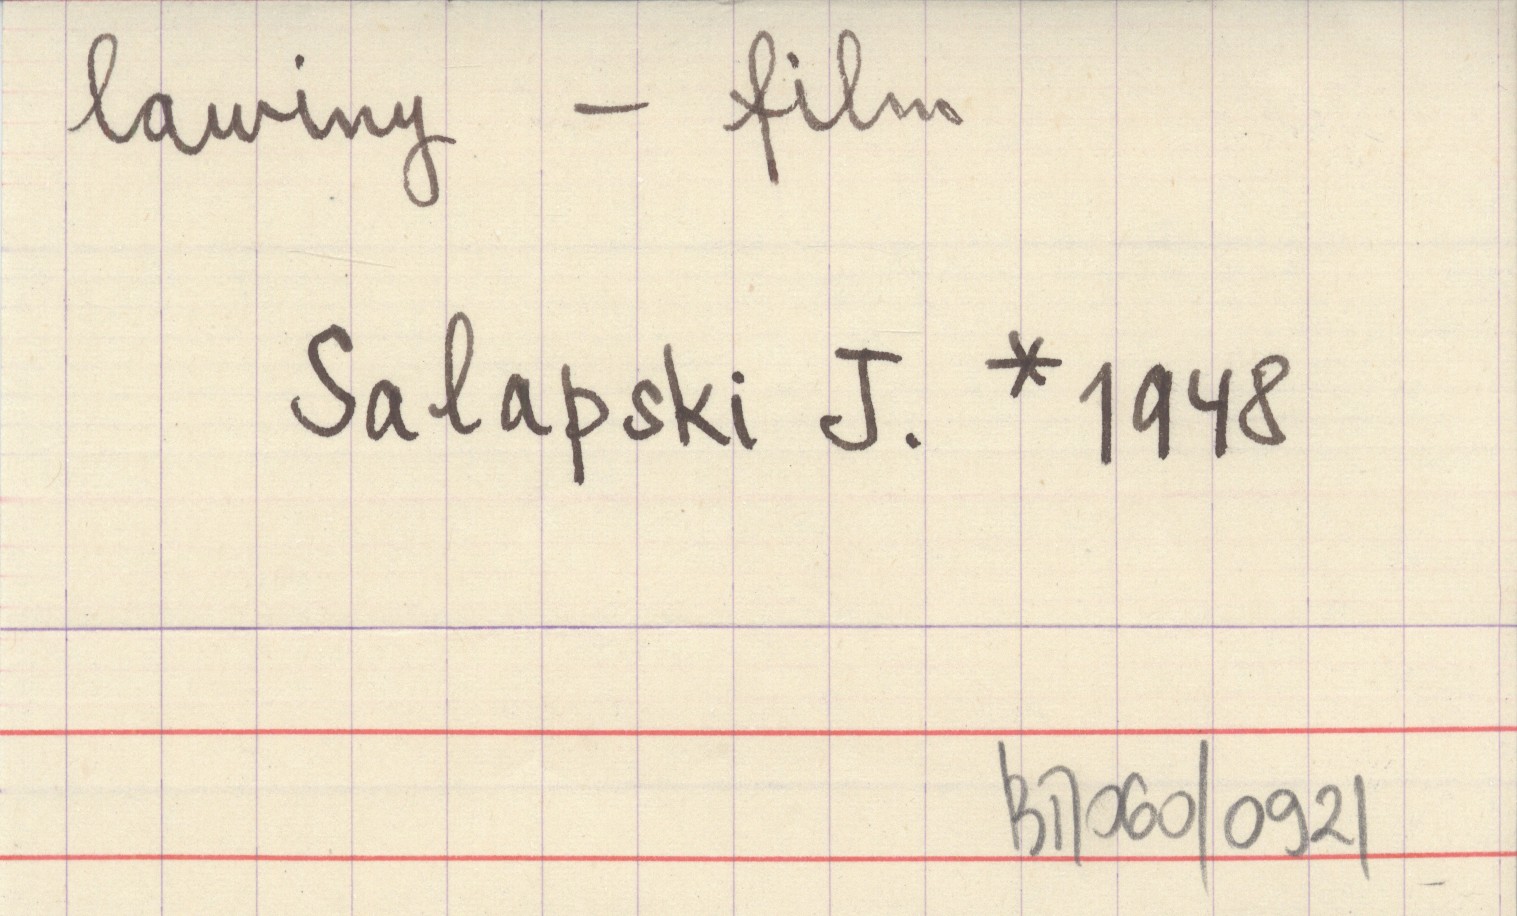 lawiny - film
Salapski J. * 1948
BT/060/0921